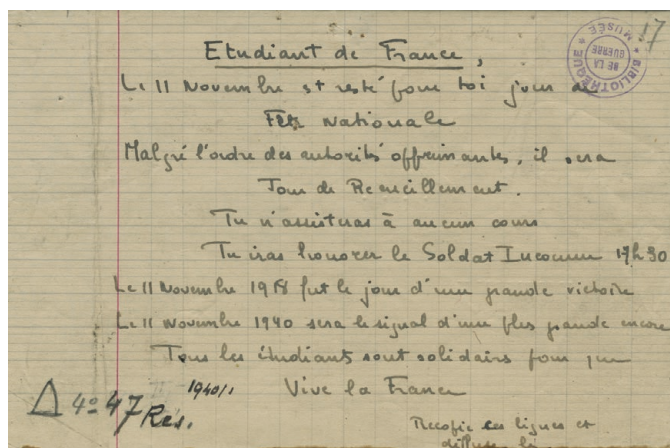 17
BIBLIOTHEQUE * MUSÉE *
DE LA
GUERRE
Etudiant de France,
Le 11 Novembre est resté pour toi jour de
Fête Nationale
Malgré l'ordre des autorités opprimantes, il sera
Jour de Recueillement.
Tu n'assisteras à aucun cours
Tu iras honorer le Soldat Inconnu 17h30
Le 11 Novembre 1918 fut le jour d'une grande victoire
Le 11 Novembre 1940 sera le signal d'une plus grande encore
Tous les étudiants sont solidaires pour que
Vive la France
1940/1
Δ 4º 47 Rés.
Recopie ces lignes et
diffuse-les